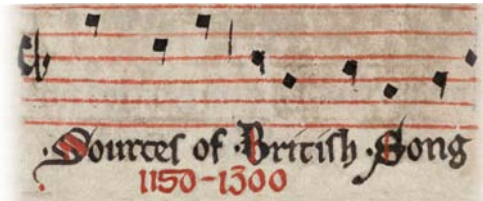 ·Sources of ·British ·Song
1150-1300